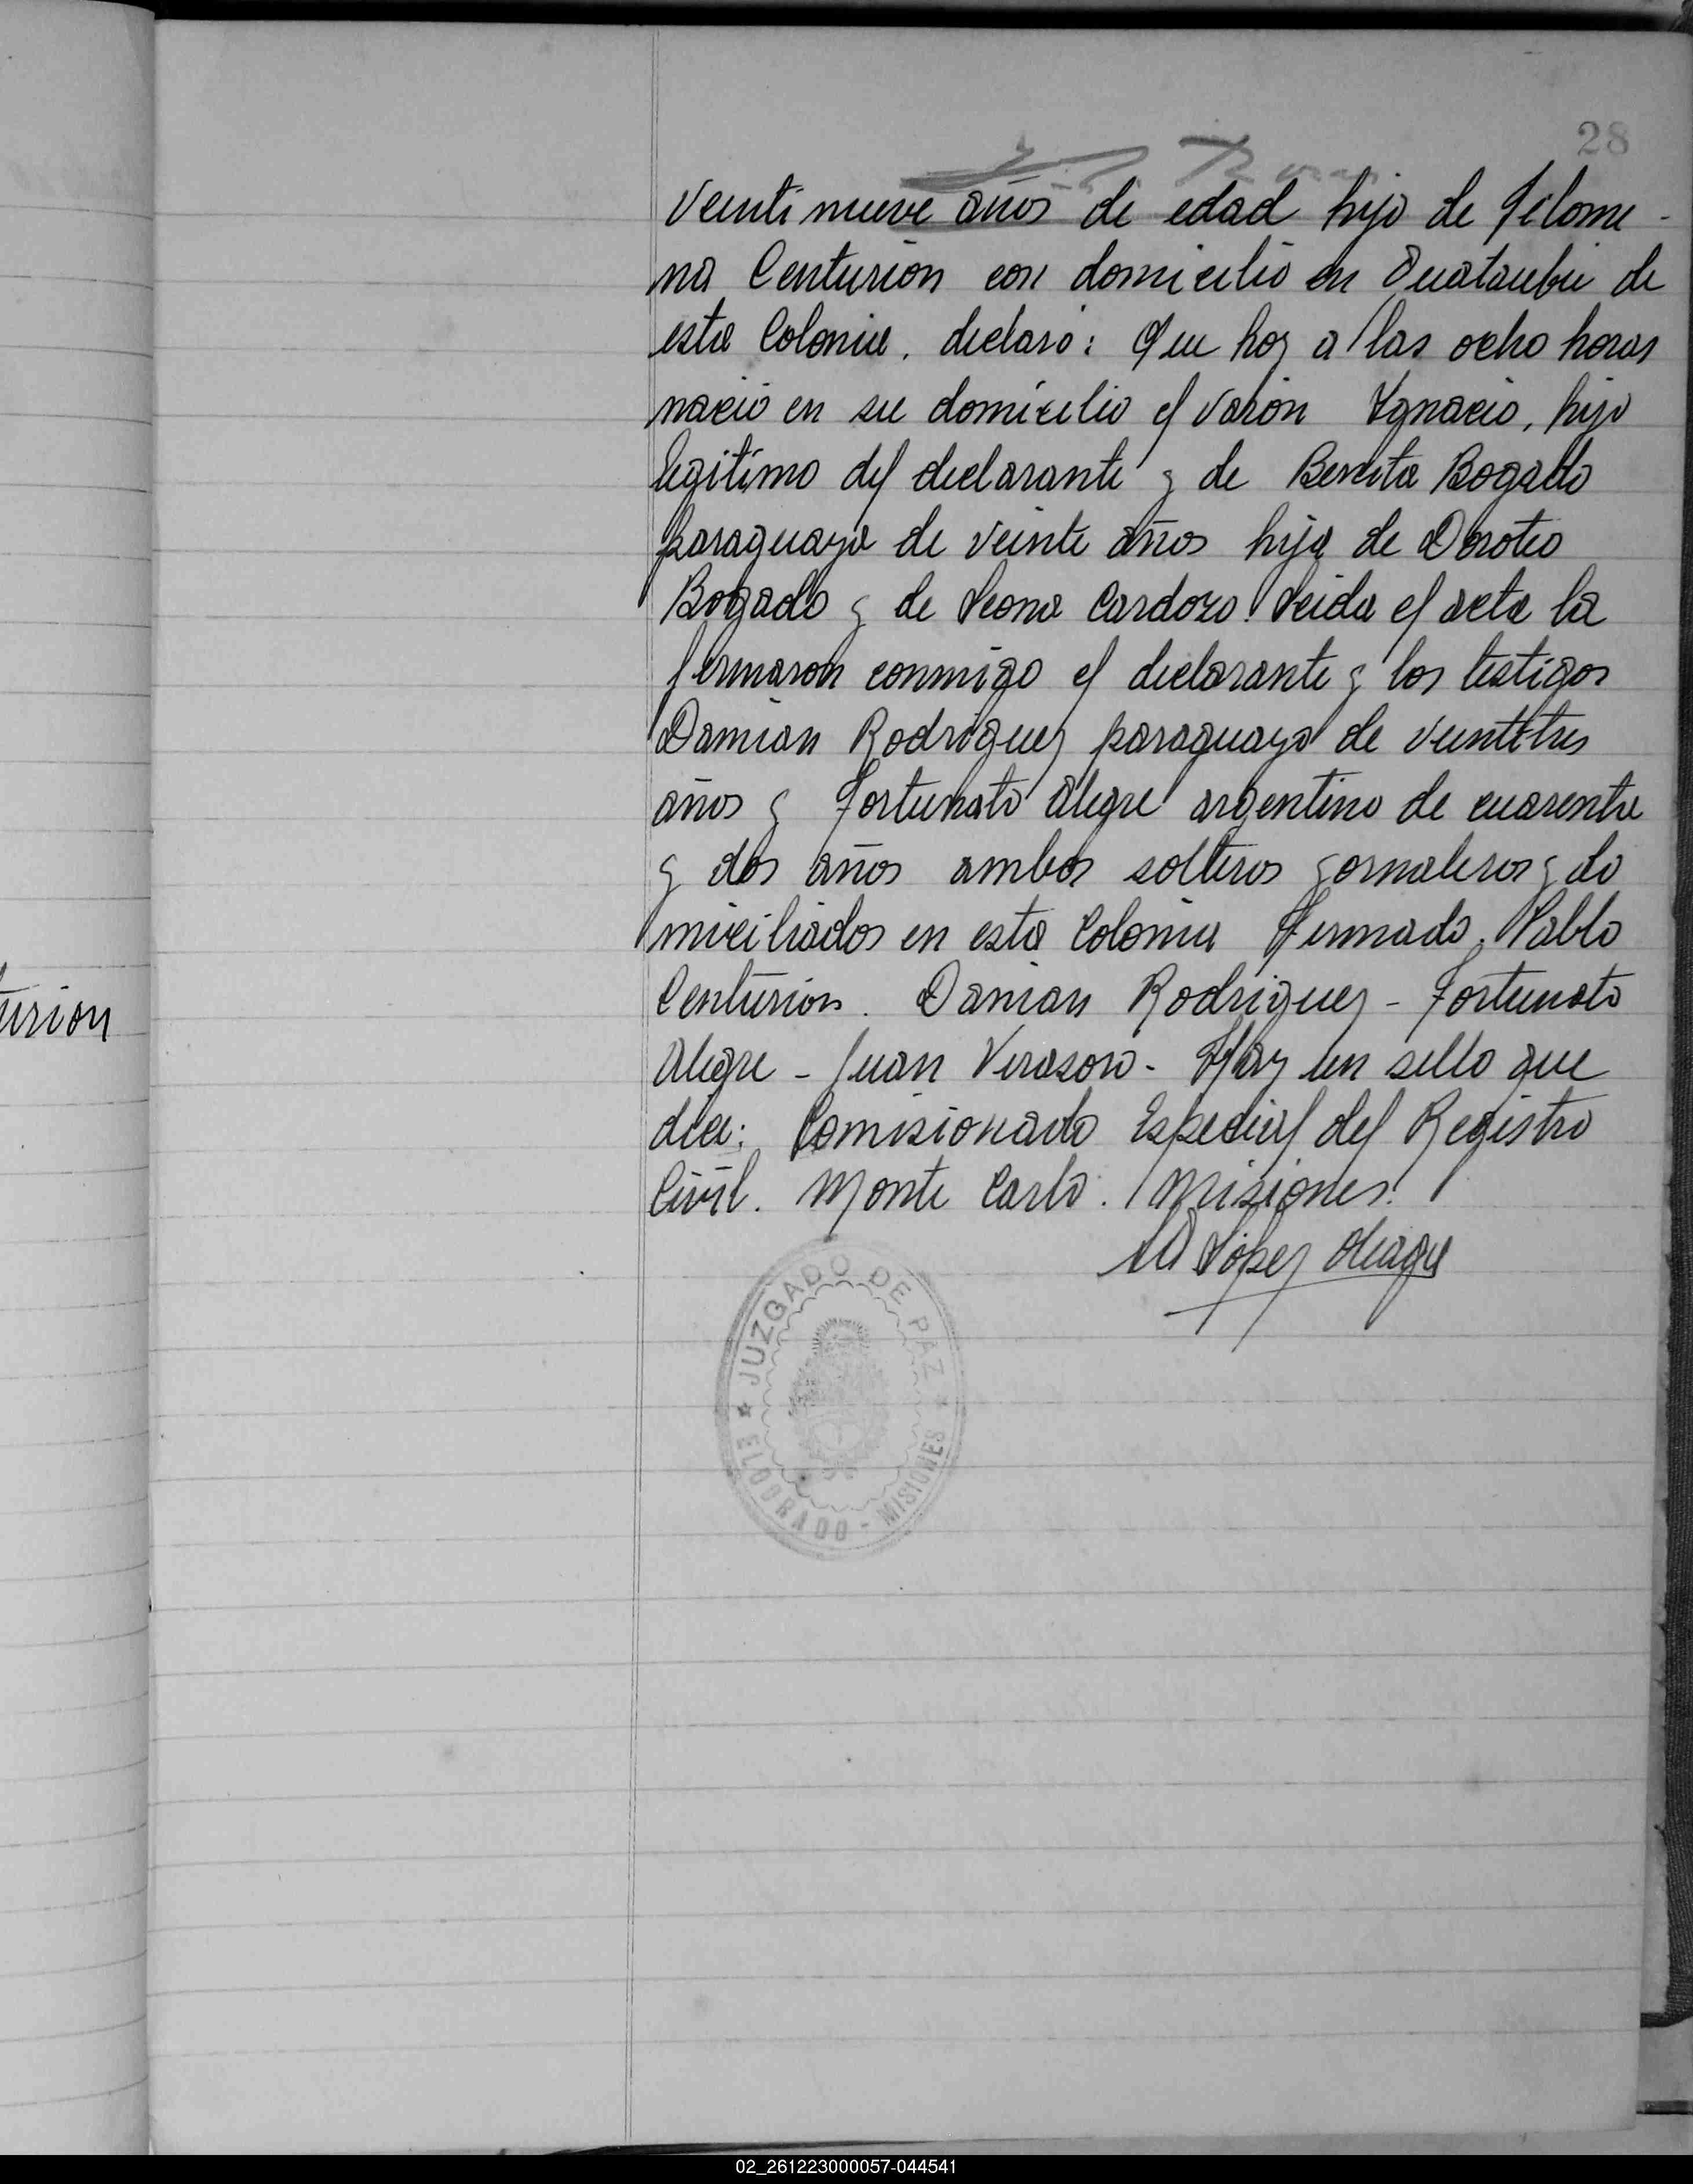 28
veinti nueve años de edad hijo de Filome-
na Centurion con domicilio en Guatambu de
esta Colonia. declaró: Que hoy a las ocho horas
nació en su domicilio el varón Ygnacio, hijo
legitimo del declarante y de Benita Bogado
paraguaya de veinte años hija de Doroteo
Bogado y de Leona Cardozo. Leida el acta la
firmaron conmigo el declarante y los testigos
Damian Rodriguez paraguayo de veintitres
años y Fortunato Alegre argentino de cuarenta
y dos años ambos solteros jornaleros y do
miciliados en esta Colonia Firmado. Pablo
Centurion. Damian Rodriguez - Fortunato
Alegre - Juan Verason - Hay un sello que
dice: Comisionado Especial del Registro
Civil. Monte Carlo. Misiones.
López
JUZGADO DE PAZ
ELDORADO - MISIONES
turion
02_261223000057-044541